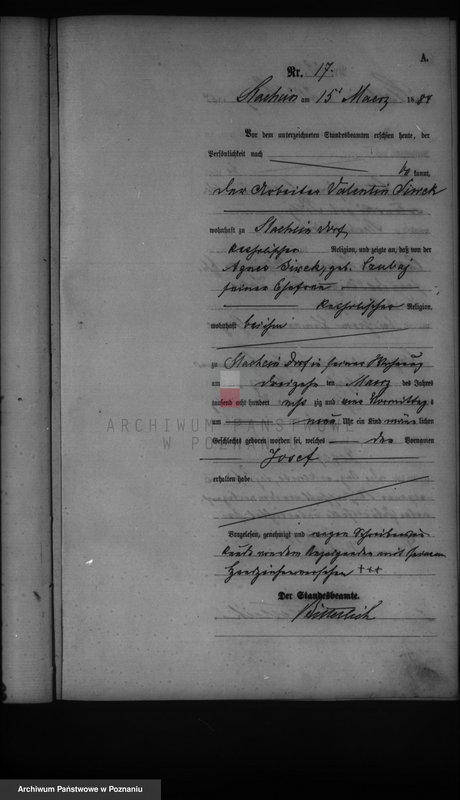 A.
Nr. 17.
am 15 Maerz 188
Vor dem unterzeichneten Standesbeamten erschien heute, der
Persönlichkeit nach
kannt,
der Arbeiter Valentin
wohnhaft zu Dorf
katholischer Religion, und zeigte an, daß von der
Agnes geb.
seiner Ehefrau
katholischer Religion,
wohnhaft bei ihm
zu Dorf in seiner Wohnung
am dreizehn ten Maerz des Jahres
tausend acht hundert acht zig und Vormittags
um neun Uhr ein Kind männlichen
Geschlechts geboren worden sei, welches den Vornamen
Josef
erhalten habe
ARCHIWUM PAŃSTWOWE
W POZNANIU
Vorgelesen, genehmigt und wegen Schreibens
von dem Anzeigenden mit seinem
Handzeichen versehen +++
Der Standesbeamte.
Bitterlich
Archiwum Państwowe w Poznaniu